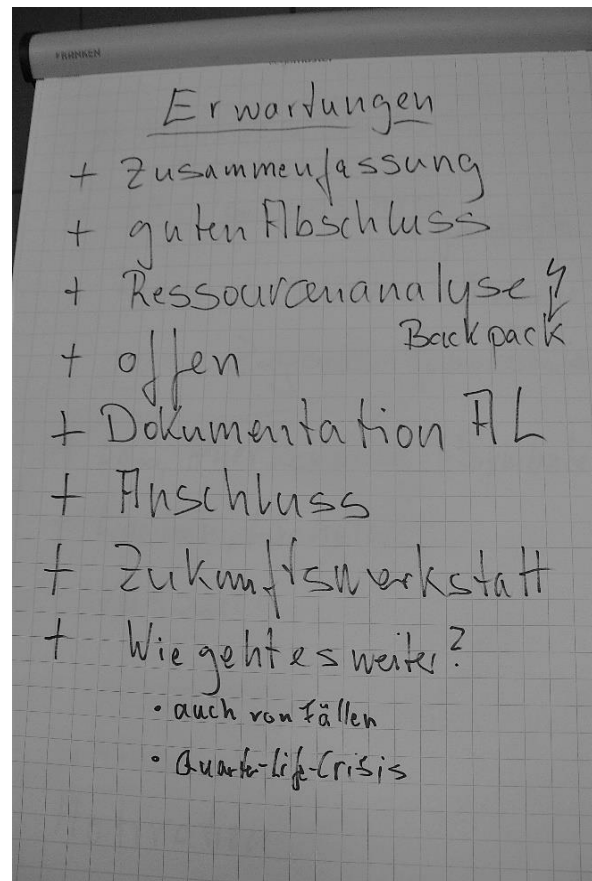 FRANKEN
Erwartungen
+ Zusammenfassung
+ guten Abschluss
+ Ressourcenanalyse ↯
Backpack
+ offen
+ Dokumentation AL
+ Anschluss
+ Zukunftswerkstatt
+ Wie geht es weiter?
• auch von Fällen
• Quarter-Life-Crisis